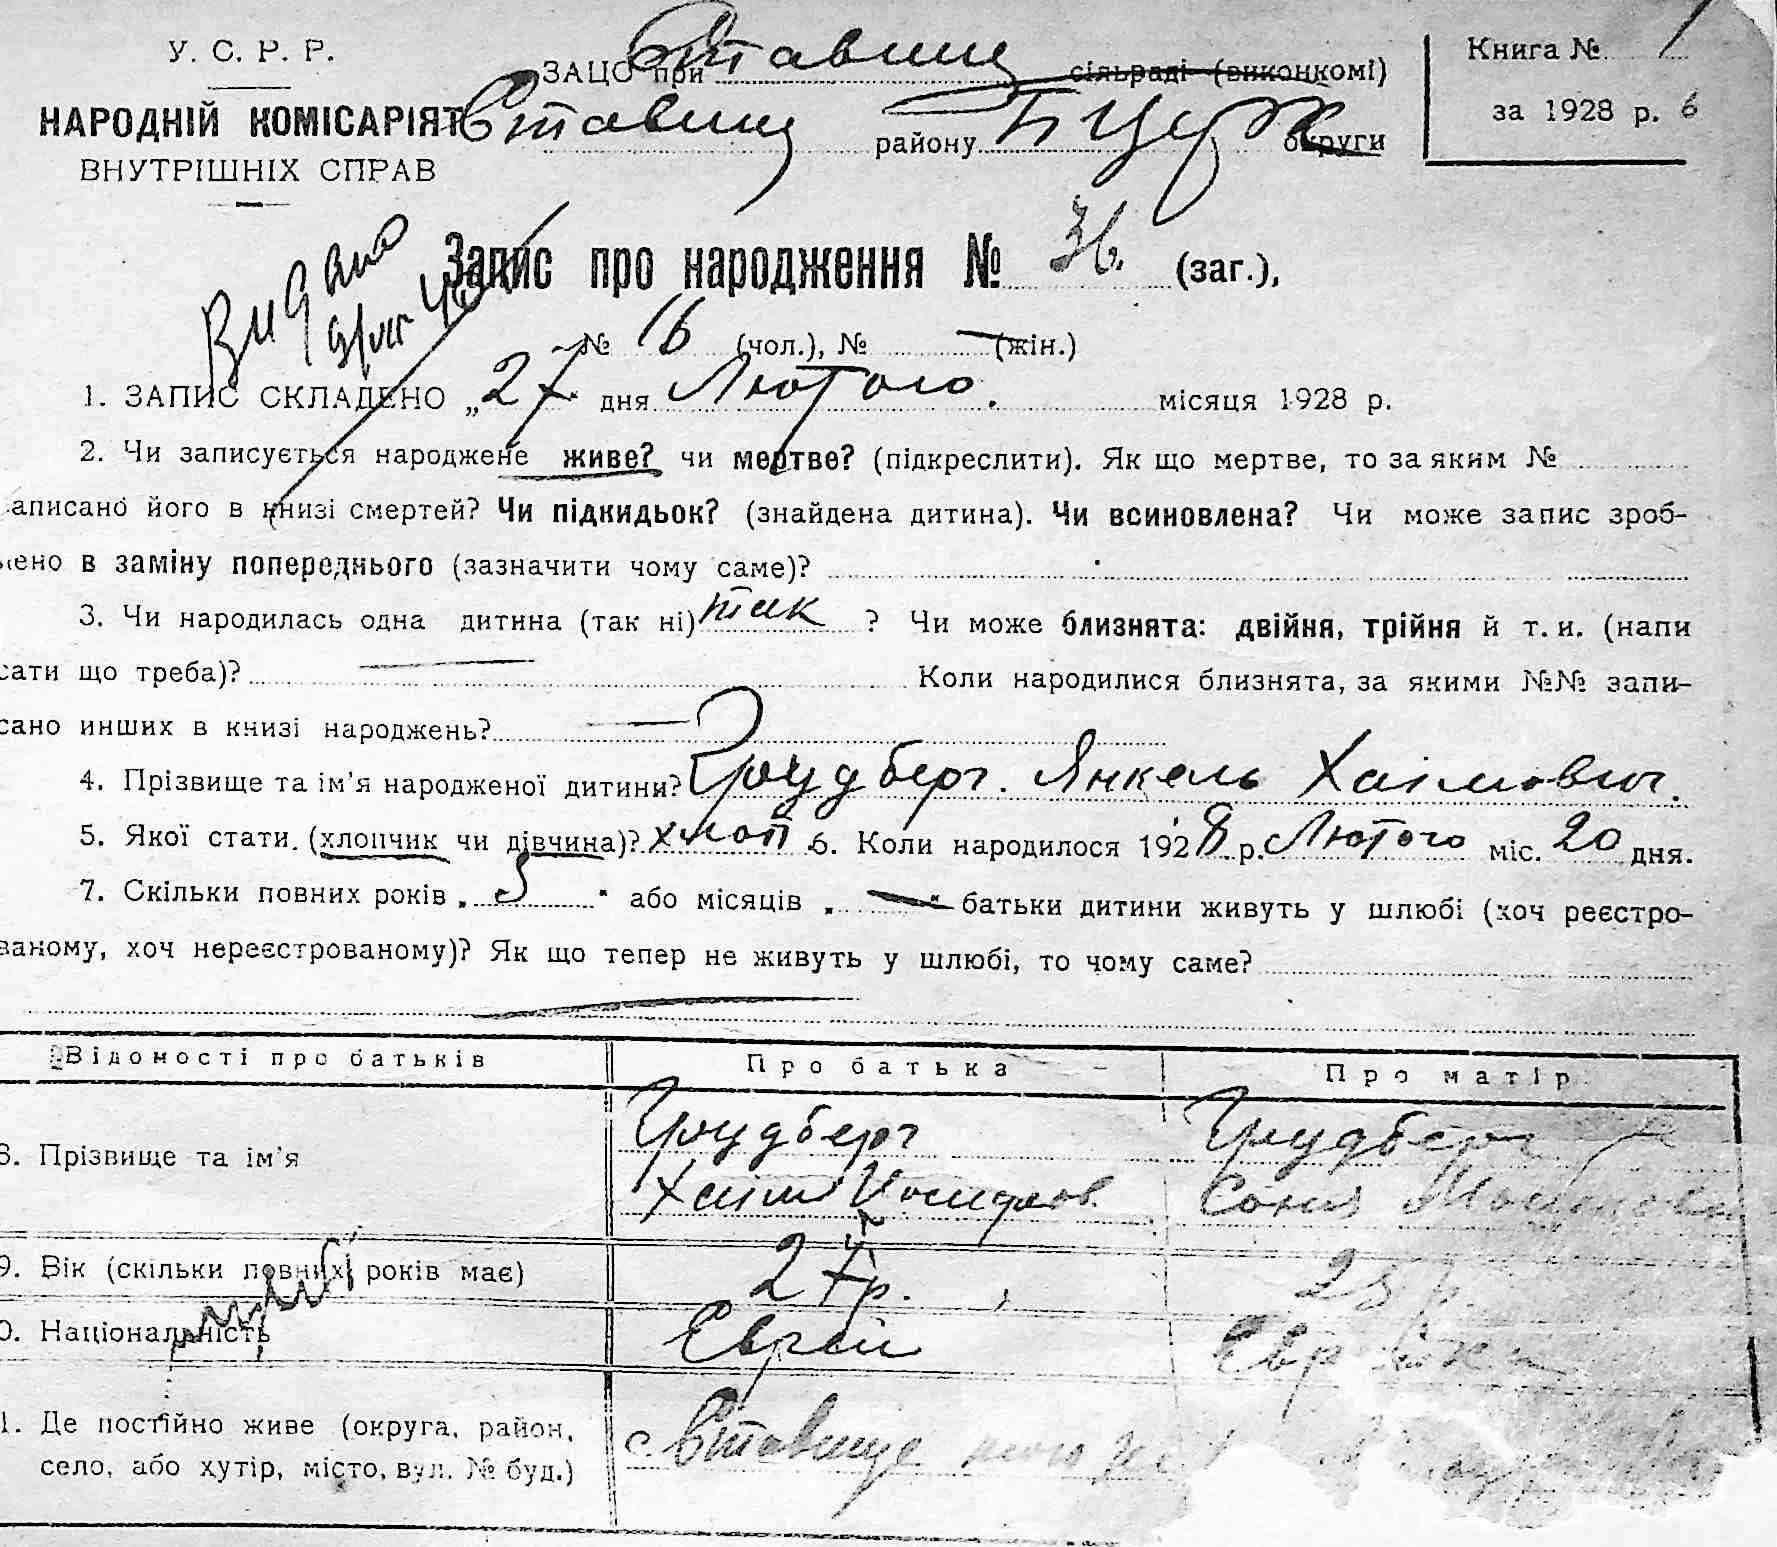 У. С. Р. Р.
НАРОДНІЙ КОМІСАРІЯТ
ВНУТРІШНІХ СПРАВ
ЗАЦС при Ставищ сільраді (виконкомі)
Ставищ району БЦерк округи
Книга № 1
за 1928 р. 6
Видано
Запис про народження № 36. (заг.),
№ 16 (чол.), № — (жін.)
1. ЗАПИС СКЛАДЕНО „27" дня Лютого. місяця 1928 р.
2. Чи записується народжене живе? чи мертве? (підкреслити). Як що мертве, то за яким №
записано його в книзі смертей? Чи підкидьок? (знайдена дитина). Чи всиновлена? Чи може запис зроб-
лено в заміну попереднього (зазначити чому саме)?
3. Чи народилась одна дитина (так ні) так ? Чи може близнята: двійня, трійня й т. и. (напи
сати що треба)? — Коли народилися близнята, за якими №№ запи-
сано инших в книзі народжень? —
4. Прізвище та ім'я народженої дитини? Грудберг. Янкель Хаімович.
5. Якої стати. (хлопчик чи дівчина)? хлоп 6. Коли народилося 1928 р. Лютого міс. 20 дня.
7. Скільки повних років „ 5 " або місяців „ — " батьки дитини живуть у шлюбі (хоч реєстро-
ваному, хоч нереєстрованому)? Як що тепер не живуть у шлюбі, то чому саме?
Відомості про батьків
Про батька
Про матір
8. Прізвище та ім'я
Грудберг
Хаім
Грудберг
Соня
9. Вік (скільки повних років має)
27 р.
25
0. Національність
Єврей
Єврейка
1. Де постійно живе (округа, район,
село, або хутір, місто, вул. № буд.)
с. Ставище